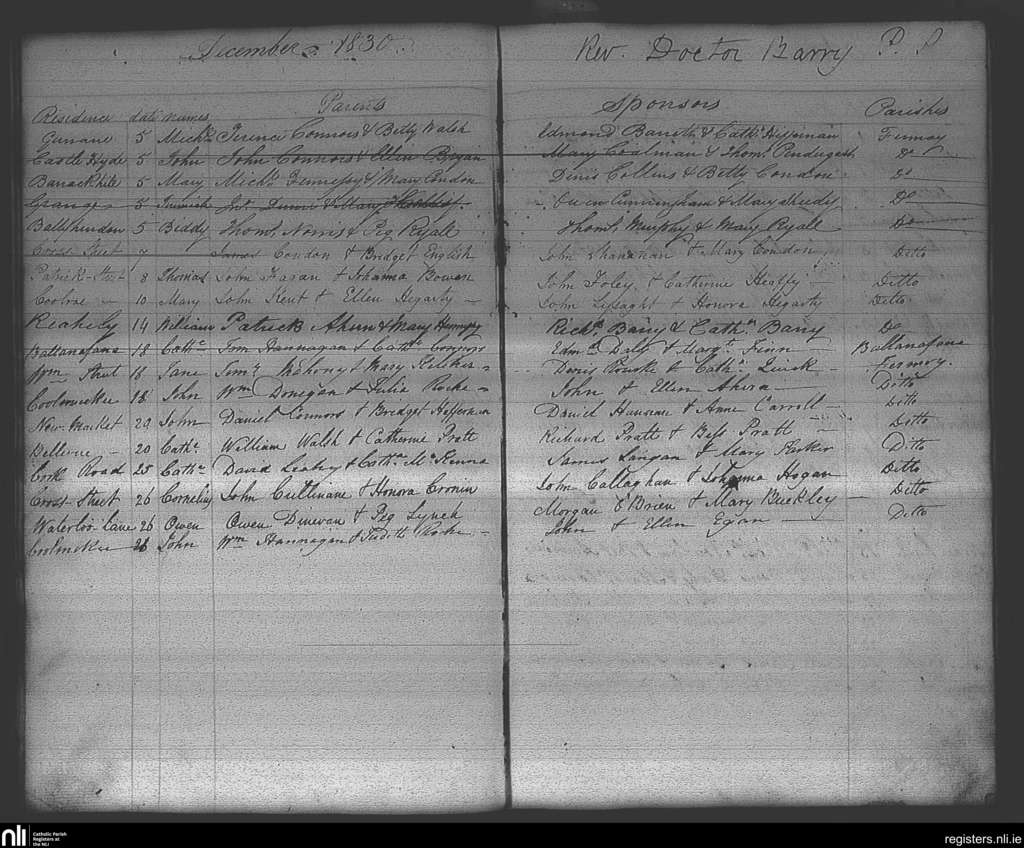 December 1830 Rev. Doctor Barry P. P
Residence date names Parents Sponsors Parishes
Gurrane 5 Michl Terence Connors & Betty Walsh Edmond Barrett & Cathn Heffernan Fermoy
Castle Hyde 5 John John Connors & Ellen Bryan Mary Coalman & Thoms Pendergast Do
Barrackhill 5 Mary Michl Fennessy & Mary Condon Denis Collins & Betty Condon Do
Grange 5 Owen Cunningham & Mary Sheedy Do
Ballyhindon 5 Biddy Thoms Norris & Peg Ryall Thoms Murphy & Mary Ryall Do
Cross Street 7 James Condon & Bridget English John Shanahan & Mary Condon Ditto
Patrick Street 8 Thomas John & Johanna Bowen John Foley & Catherine Ditto
Coolroe 10 Mary John Kent & Ellen Hegarty John Lysaght & Honora Hegarty Ditto
14 William Patrick Ahern & Mary Richd Barry & Cathn Barry Do
Ballanafana 18 Cathe Tom Hannagan & Cathe Edmd Daly & Margt Finn Ballanafana
Wm Street 18 Jane Mahony & Mary Denis Rourke & Cathn Quirk Fermoy
18 John Wm Donegan & Julia Roche John & Ellen Ditto
New Market 20 John Daniel Connors & Bridget Heffernan David & Anne Carroll Ditto
Bellevue 20 Cathe William Walsh & Catherine Pratt Richard Pratt & Bess Pratt Ditto
Cork Road 25 Cathe David Leahy & Cathn McKenna James Langan & Mary Ditto
Cross Street 26 Cornelius John Cullinane & Honora Cronin John Callaghan & Johanna Hogan Ditto
Waterloo Lane 26 Owen Owen Dinevan & Peg Lynch Morgan O'Brien & Mary Buckley Ditto
26 John Wm Hannagan & Judith Roche John & Ellen Egan Ditto
nli Catholic Parish Registers at the NLI
registers.nli.ie